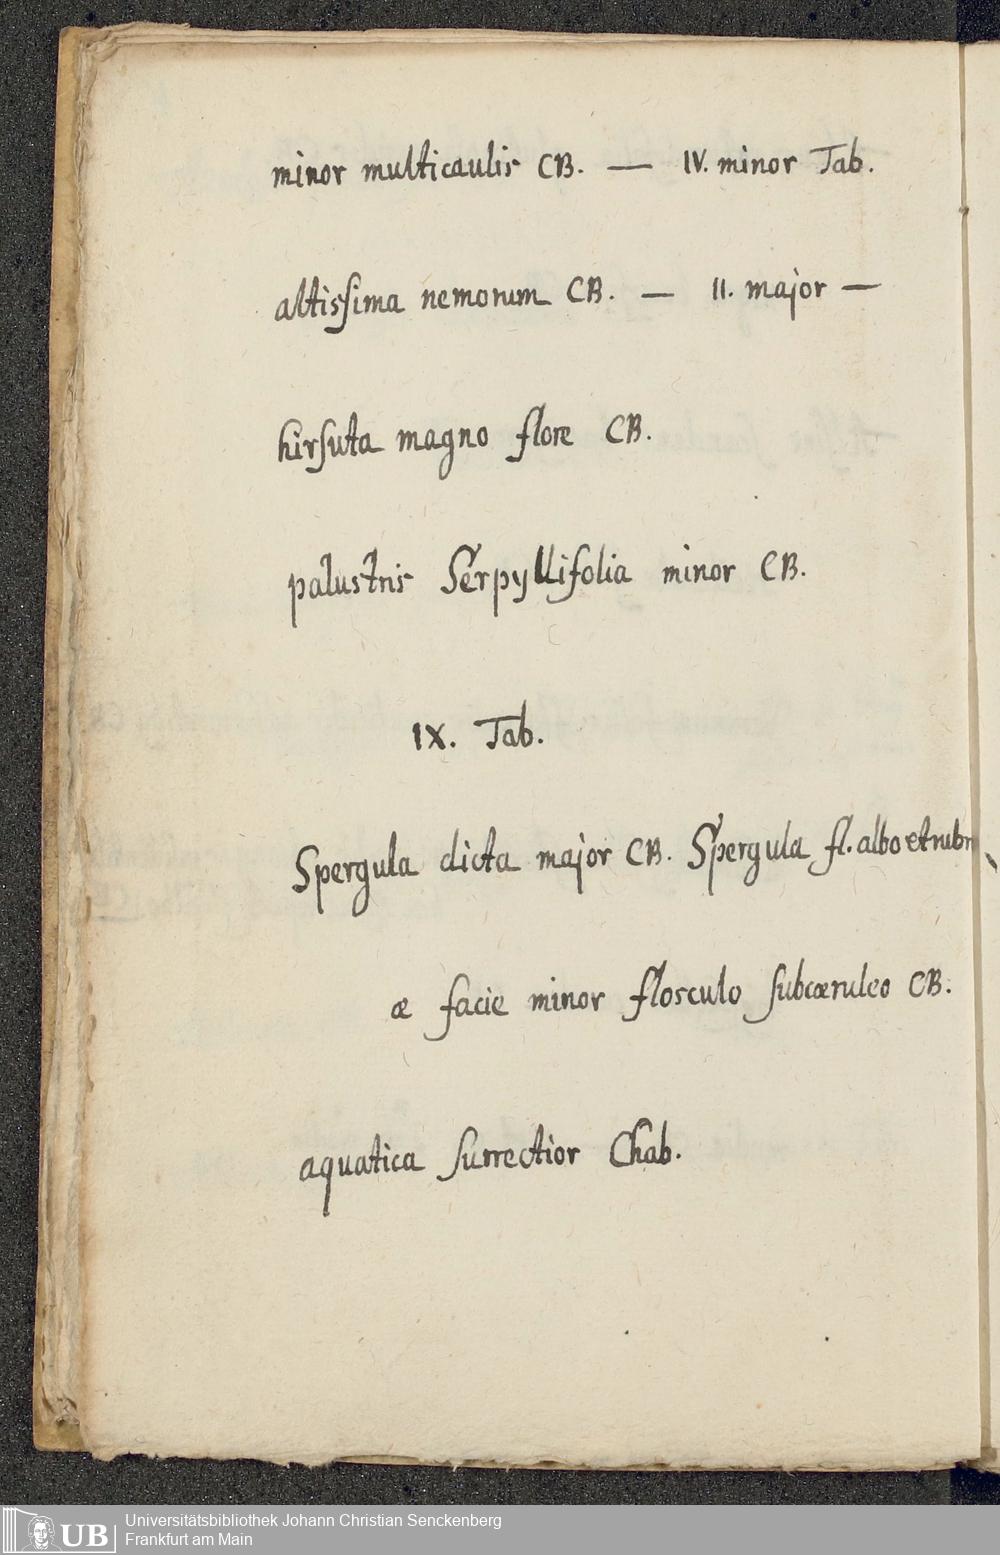 minor multicaulis CB. — IV. minor Tab.
altissima nemorum CB. — II. major —
hirsuta magno flore CB.
palustris Serpyllifolia minor CB.
IX. Tab.
Spergula dicta major CB. Spergula fl. albo et rubr
æ facie minor flosculo subcæruleo CB.
aquatica surrectior Chab.
UB Universitätsbibliothek Johann Christian Senckenberg
Frankfurt am Main